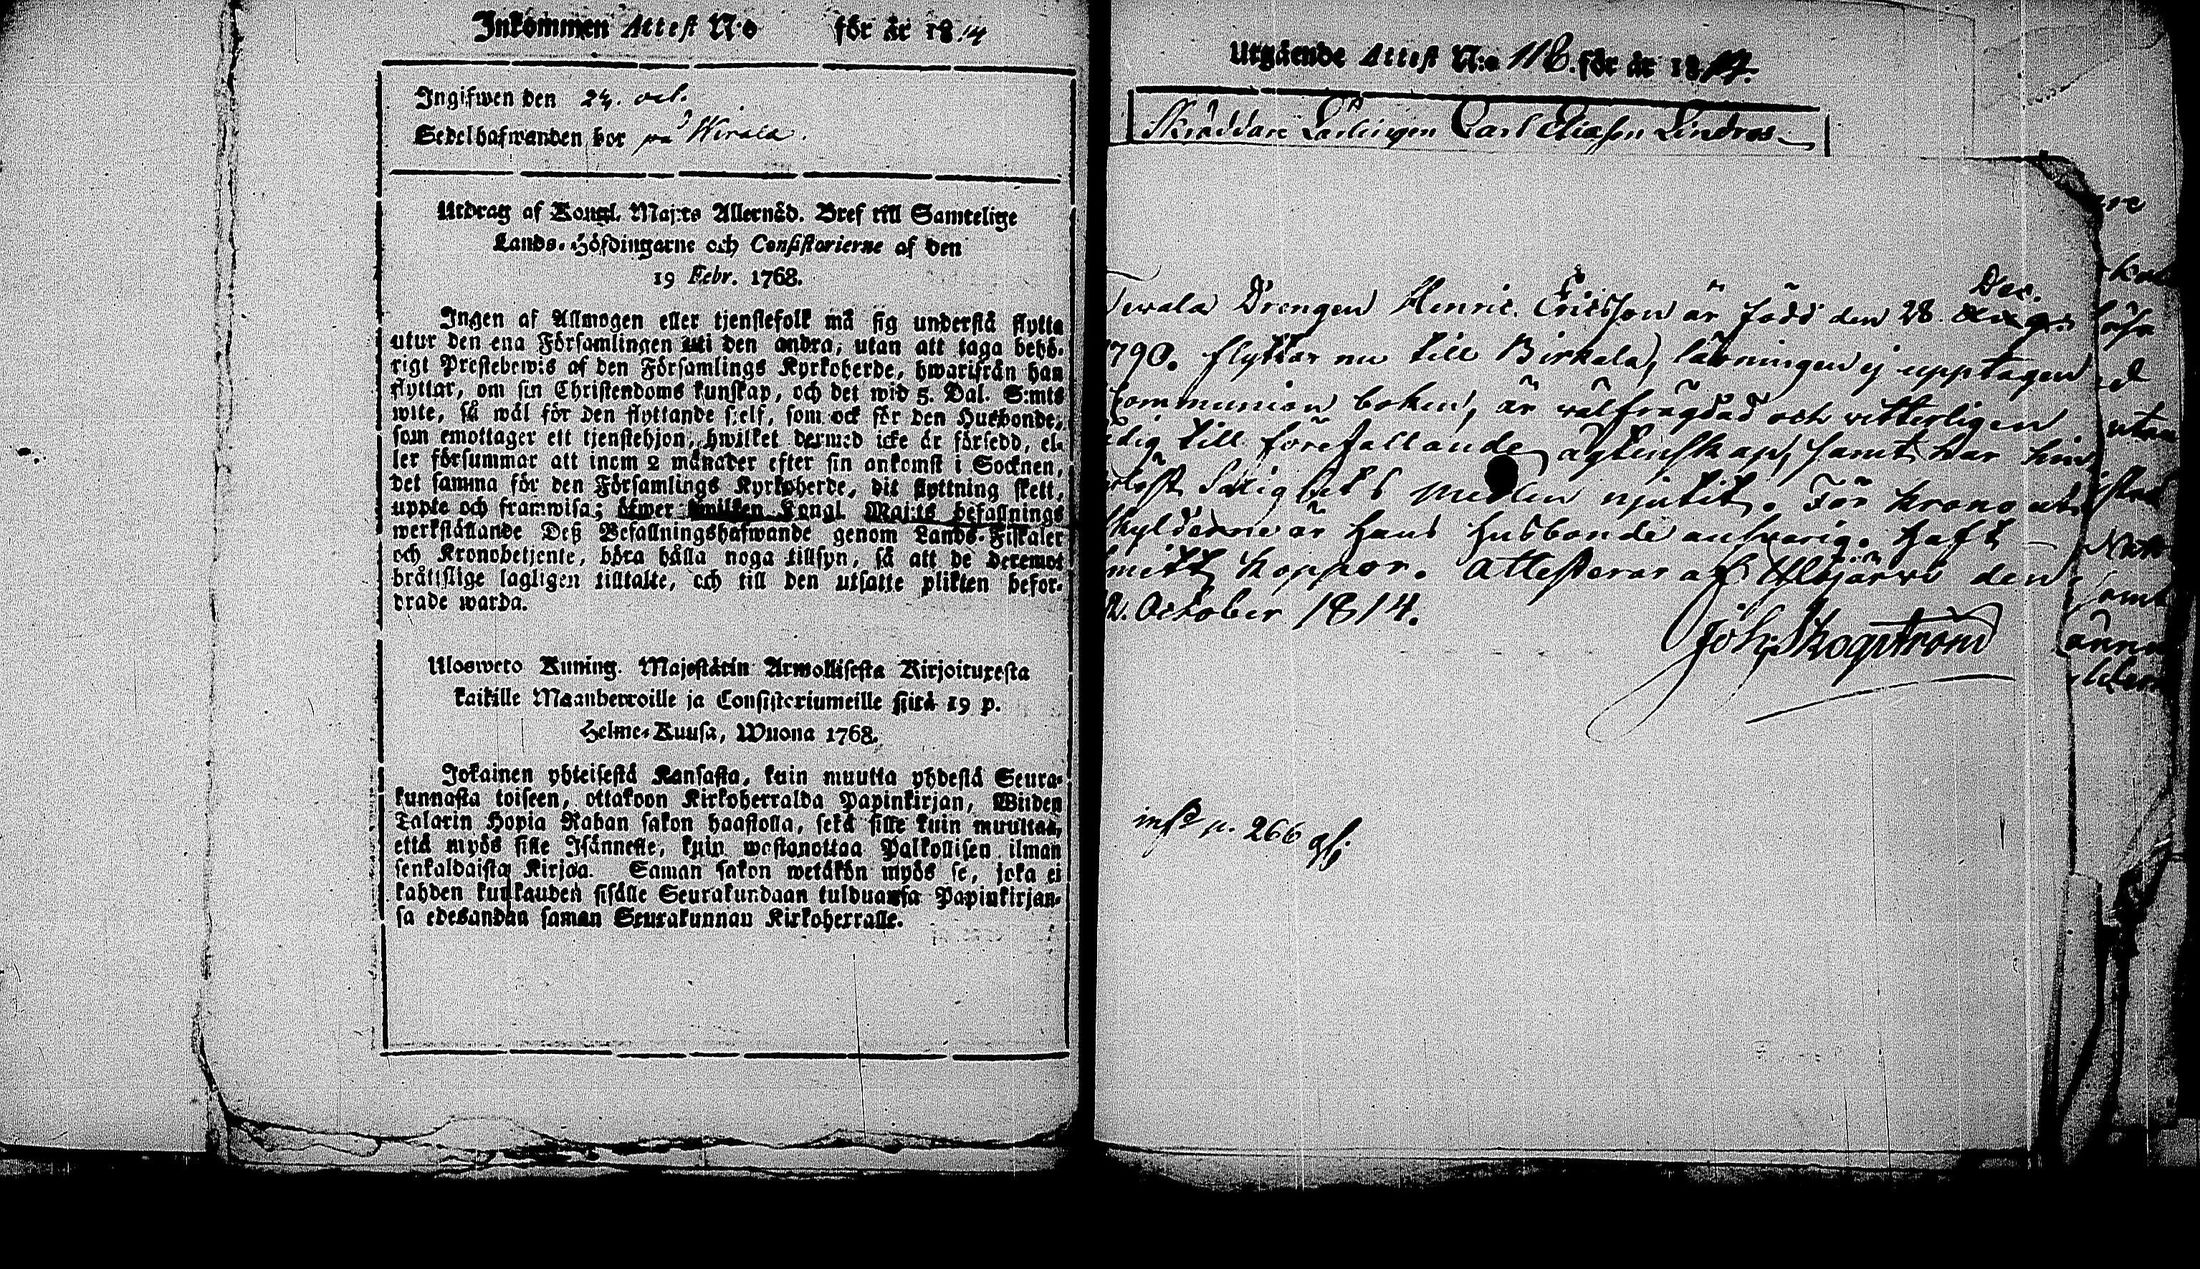 Inkommen Attest N:o för år 1814
Ingifwen den 24. oct.
Sedelhafwanden bor på Wirala.
Utdrag af Kongl. Maj:ts Allernåd. Bref till Samtelige
Lands-Höfdingarne och Consistorierne af den
19 Febr. 1768.
Ingen af Allmogen eller tjenstefolk må sig understå flytta
utur den ena Församlingen uti den andra, utan att taga behö-
rigt Prestebewis af den Församlings Kyrkoherde, hwarifrån han
flyttar, om sin Christendoms kunskap, och det wid 5. Dal. S:mts
wite, så wäl för den flyttande sjelf, som ock för den Husbonde,
som emottager ett tjenstehjon, hwilket dermed icke är försedd, el-
ler försummar att inom 2 månader efter sin ankomst i Socknen,
det samma för den Församlings Kyrkoherde, dit flyttning skett,
uppte och framwisa; öfwer hwilken Kongl. Maj:ts befallnings
werkställande Deß Befallningshafwande genom Lands-Fiskaler
och Kronobetjente, böra hålla noga tillsyn, så att de deremot
bråttslige lagligen tilltalte, och till den utsatte plikten befor-
drade warda.
Ulosweto Kuning. Majestätin Armollisesta Kirjoituxesta
kaikille Maanherroille ja Consistoriumeille siitä 19 p.
Helme-Kuusa, Wuona 1768.
Jokainen yhteisestä Kansasta, kuin muutta yhdestä Seura-
kunnasta toiseen, ottakoon Kirkoherralda Papinkirjan, Wiiden
Talarin Hopia Rahan sakon haastolla, sekä sille kuin muuttaa,
että myös sille Isännelle, kuin wastanottaa Palkollisen ilman
senkaldaista Kirjaa. Saman sakon wetäkön myös se, joka ei
kahden kuukauden sisälle Seurakundaan tulduansa Papinkirjan-
sa edesandan saman Seurakunnan Kirkoherralle.
Utgående Attest N:o 118. för år 18
Skräddare Lärlingen Carl Eliasson Lindros
Drengen Henric Ericsson är född den 28. Dec.
1790. flyttar nu till Birkala, läsningen ej upptagen
Communion boken, är wälfrägdad och witterligen
ledig till förefallande ägtenskap, samt har hin-
Salighets medlen njutit. För krono ut-
skylderne är hans husbonde answarig. Haft
koppor. Attesterar af den
October 1814.
Joh: Skogström
p. 266